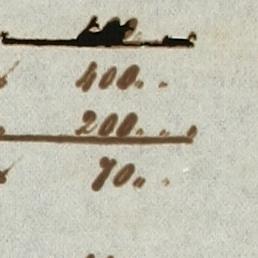 400.. .
200.. . .
70.. .